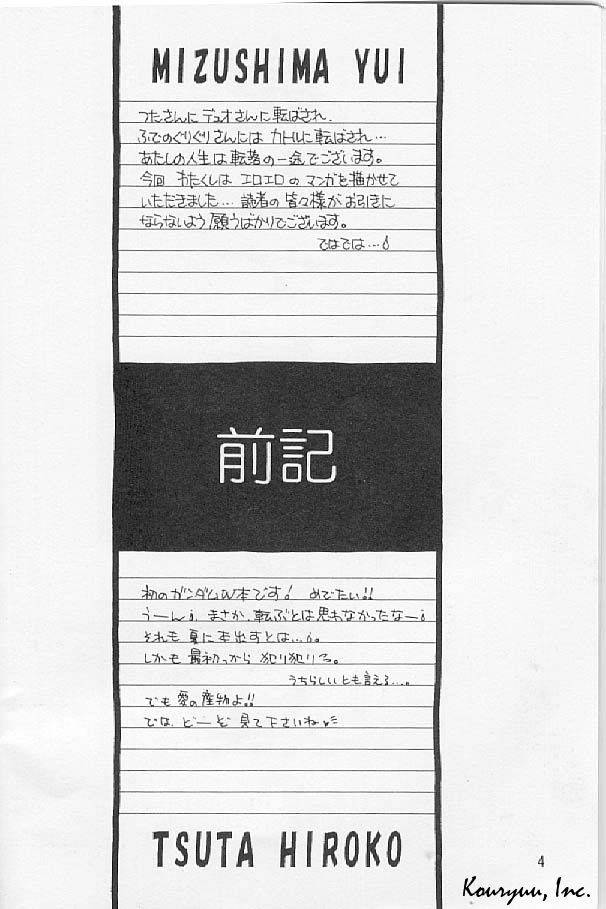 MIZUSHIMA YUI
つたさんに デュオさんに転ばされ、
ふでのぐりぐりさんには カトルに転ばされ…
あたしの人生は転落の一途でございます。
今回 わたくしは エロエロの マンガを描かせて
いただきました… 読者の 皆々様が お引きに
ならないよう 願うばかりでございます。
ではでは…
前記
初のガンダムW本です! めでたい!!
うーん 、まさか、転ぶとは思わなかったなー
それも 夏に本出すとは…。
しかも 最初っから 犯り犯りる。
うちらしいとも言える…。
でも 愛の産物よ!!
では、どーぞ 見て下さいね
TSUTA HIROKO
4
Kouryuu, Inc.